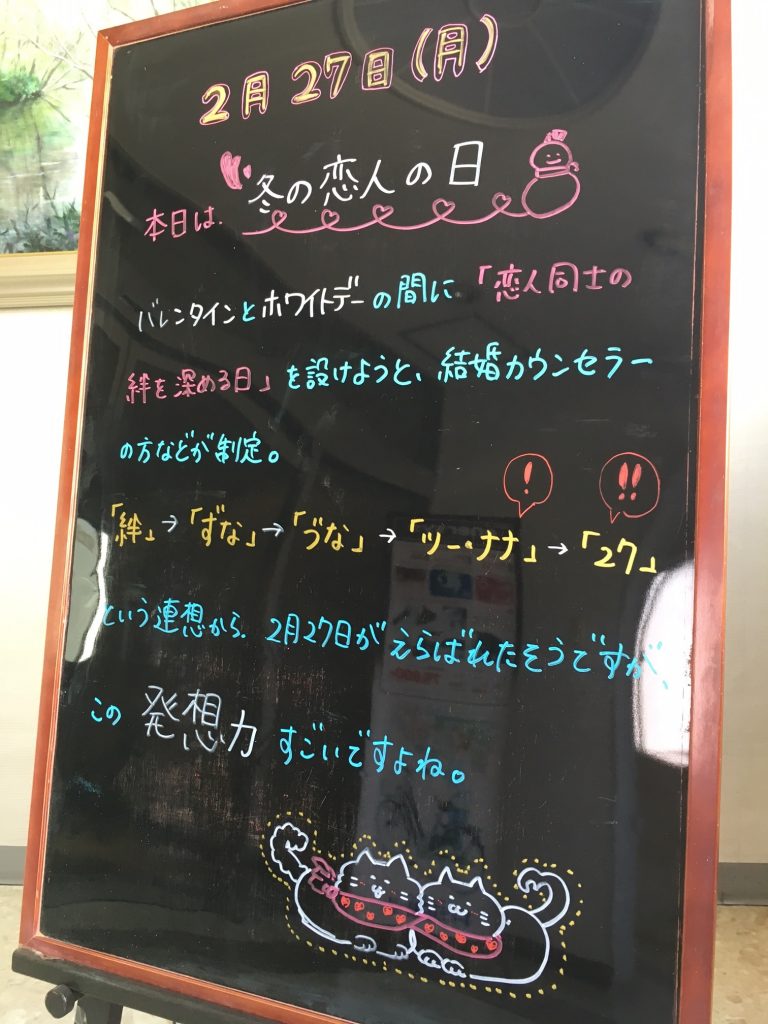 2月27日(月)
本日は、冬の恋人の日
バレンタインとホワイトデーの間に「恋人同士の
絆を深める日」を設けようと、結婚カウンセラー
の方などが制定。
! !!
「絆」→「ずな」→「づな」→「ツー・ナナ」→「27」
という連想から、2月27日がえらばれたそうですが、
この発想力すごいですよね。